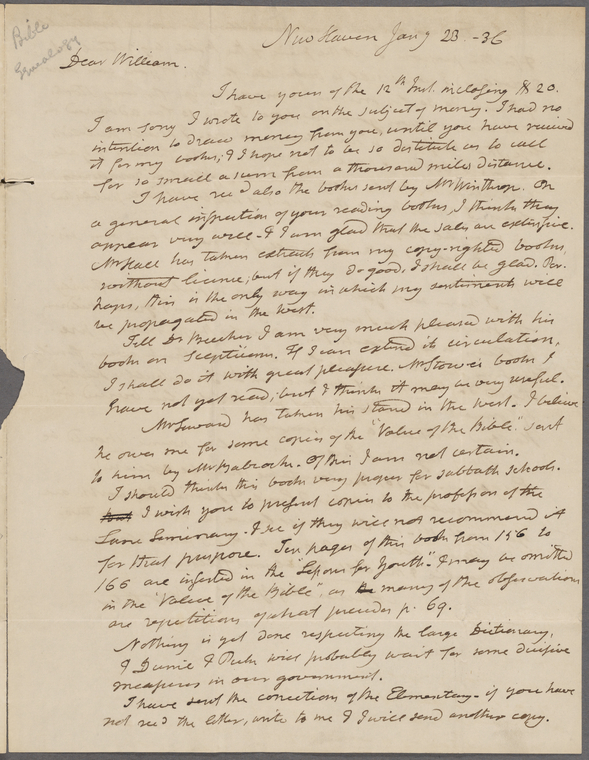 Bible
Genealogy
New Haven Jany 23. -36
Dear William.
I have yours of the 12th Inst. inclosing $20.
I am sorry I wrote to you on the subject of money. I had no
intention to draw money from you, until you have received
it for my books; & I hope not to be so destitute as to call
for so small a sum from a thousand miles distance.
I have recd also the books sent by Mr Winthrop. On
a general inspection of your reading books, I think they
appear very well & I am glad that the sales are extensive.
Mr Hall has taken extracts from my copy-righted books,
without license; but if they do good, I shall be glad. Per-
haps, this is the only way in which my sentiments will
be propagated in the West.
Tell Dr Beecher I am very much pleased with his
book on Scepticism. If I can extend its circulation,
I shall do it with great pleasure. Mr Stowe's book I
have not yet read; but I think it may be very useful.
Mr has taken his stand in the West. I believe
he owes me for some copies of the "Value of the Bible" sent
to him by Mr Babcock. Of this I am not certain.
I should think this book very proper for sabbath schools.
I wish you to present copies to the professors of the
Lane Seminary. & see if they will not recommend it
for that purpose. Ten pages of this book from 156 to
166 are inserted in the "Lessons for Youth". & may be omitted
in the "Value of the Bible", as many of the observations
are repetitions of what precedes p. 69.
Nothing is yet done respecting the large Dictionary,
& Durrie & Peck will probably wait for some decisive
measures in our government.
I have sent the corrections of the Elementary - if you have
not recd the letter, write to me & I will send another copy.